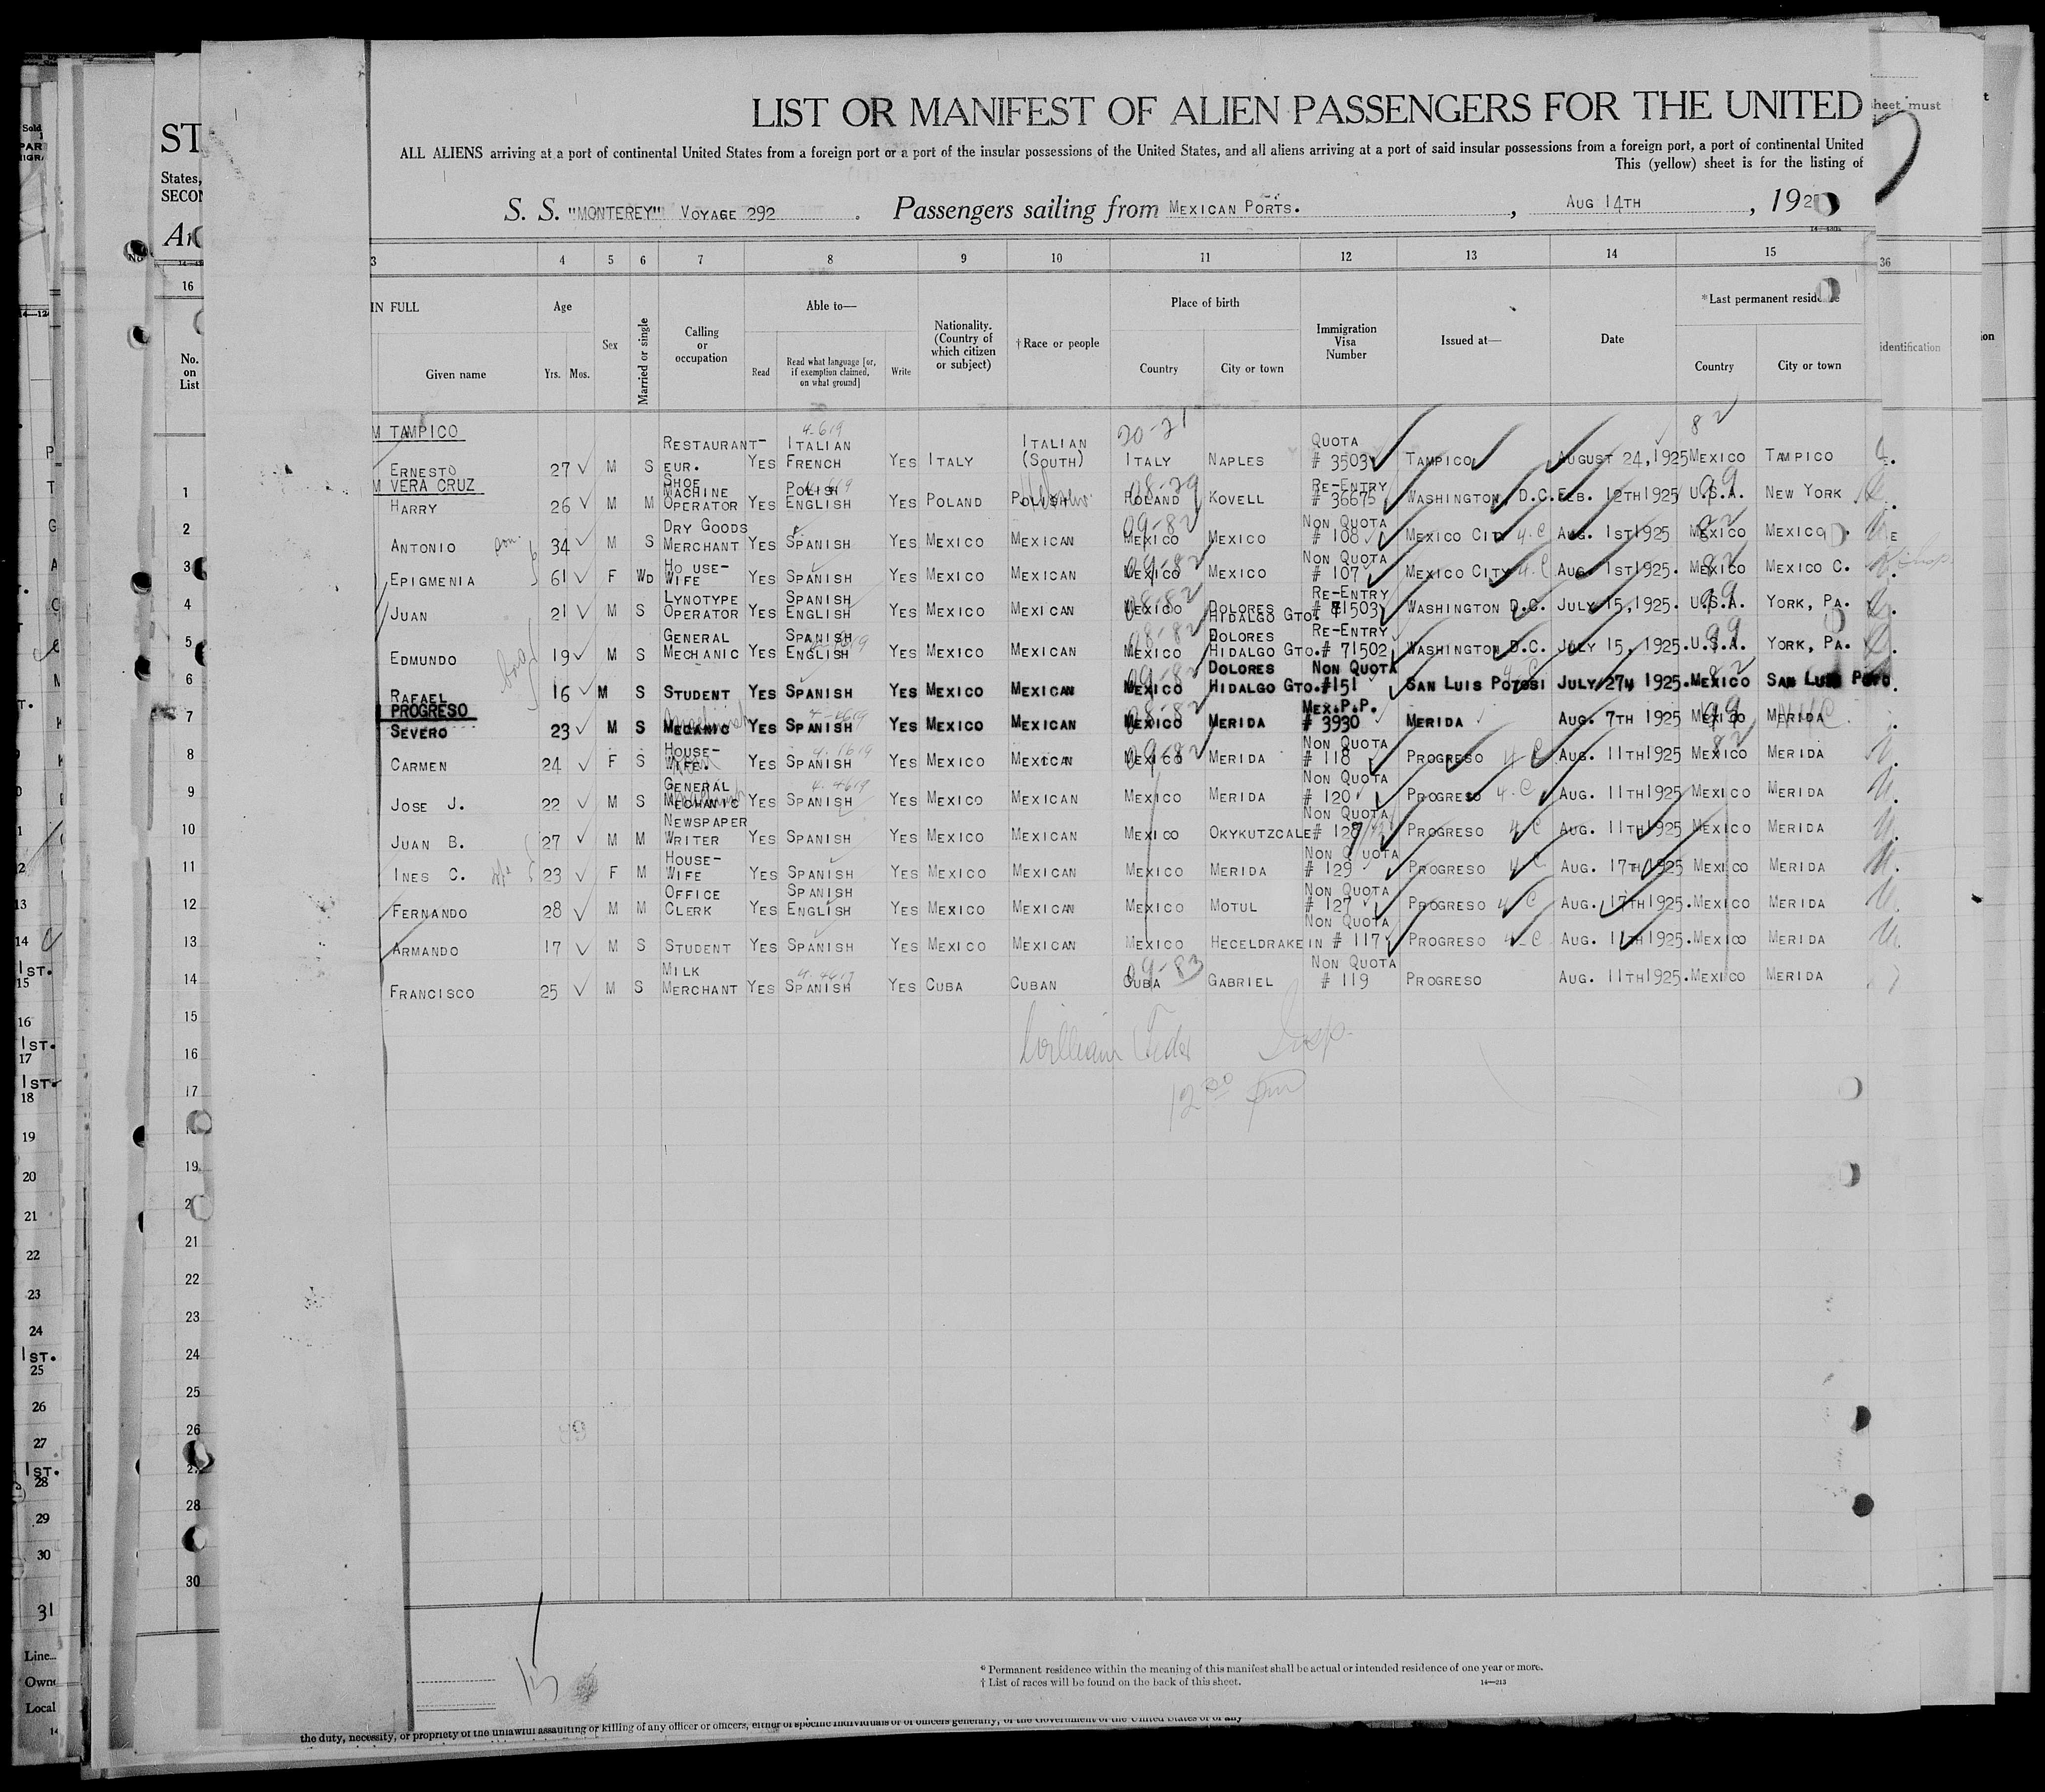 LIST OR MANIFEST OF ALIEN PASSENGERS FOR THE UNITED
ALL ALIENS arriving at a port of continental United States from a foreign port or a port of the insular possessions of the United States, and all aliens arriving at a port of said insular possessions from a foreign port, a port of continental United
This (yellow) sheet is for the listing of
S. S. "MONTEREY" VOYAGE 292. Passengers sailing from MEXICAN PORTS., AUG 14TH, 192
3 4 5 6 7 8 9 10 11 12 13 14 15
IN FULL Age Sex Married or single Calling or occupation Able to— Nationality. (Country of which citizen or subject) †Race or people Place of birth Immigration Visa Number Issued at— Date *Last permanent residence
Given name Yrs. Mos. Read Read what language [or, if exemption claimed, on what ground] Write Country City or town Country City or town
M TAMPICO
ERNESTO 27 M S RESTAURANT-EUR. YES ITALIAN FRENCH YES ITALY ITALIAN (SOUTH) ITALY NAPLES QUOTA # 3503 TAMPICO AUGUST 24, 1925 MEXICO TAMPICO
M VERA CRUZ
HARRY 26 M M SHOE MACHINE OPERATOR YES POLISH ENGLISH YES POLAND POLISH POLAND KOVELL RE-ENTRY # 36675 WASHINGTON, D.C. FEB. 12TH 1925 U.S.A. NEW YORK
ANTONIO son 34 M S DRY GOODS MERCHANT YES SPANISH YES MEXICO MEXICAN MEXICO MEXICO NON QUOTA # 108 MEXICO CITY 4-C AUG. 1ST 1925 MEXICO MEXICO
EPIGMENIA 61 F WD HO USE-WIFE YES SPANISH YES MEXICO MEXICAN MEXICO MEXICO NON QUOTA # 107 MEXICO CITY 4-C AUG. 1ST 1925. MEXICO MEXICO C.
JUAN 21 M S LYNOTYPE OPERATOR YES SPANISH ENGLISH YES MEXICO MEXICAN MEXICO DOLORES HIDALGO GTO. RE-ENTRY # 71503 WASHINGTON D.C. JULY 15, 1925. U.S.A. YORK, PA.
EDMUNDO 19 M S GENERAL MECHANIC YES SPANISH ENGLISH YES MEXICO MEXICAN MEXICO DOLORES HIDALGO GTO. RE-ENTRY # 71502 WASHINGTON D.C. JULY 15, 1925. U.S.A. YORK, PA.
RAFAEL 16 M S STUDENT YES SPANISH YES MEXICO MEXICAN MEXICO DOLORES HIDALGO GTO. NON QUOTA #151 SAN LUIS POTOSI 4-C JULY 27H 1925. MEXICO SAN LUIS POTO
PROGRESO
SEVERO 23 M S MECANIC YES SPANISH YES MEXICO MEXICAN MEXICO MERIDA MEX.P.P. # 3930 MERIDA AUG. 7TH 1925 MEXICO MERIDA
CARMEN 24 F S HOUSE-WIFE. YES SPANISH YES MEXICO MEXICAN MEXICO MERIDA NON QUOTA # 118 PROGRESO 4-C AUG. 11TH 1925 MEXICO MERIDA
JOSE J. 22 M S GENERAL MECHANIC YES SPANISH YES MEXICO MEXICAN MEXICO MERIDA NON QUOTA # 120 PROGRESO 4-C AUG. 11TH 1925 MEXICO MERIDA
JUAN B. 27 M M NEWSPAPER WRITER YES SPANISH YES MEXICO MEXICAN MEXICO OKYKUTZCALE NON QUOTA # 128 PROGRESO 4-C AUG. 11TH 1925 MEXICO MERIDA
INES C. wife 23 F M HOUSE-WIFE YES SPANISH YES MEXICO MEXICAN MEXICO MERIDA NON QUOTA # 129 PROGRESO 4-C AUG. 17TH 1925 MEXICO MERIDA
FERNANDO 28 M M OFFICE CLERK YES SPANISH ENGLISH YES MEXICO MEXICAN MEXICO MOTUL NON QUOTA # 127 PROGRESO 4-C AUG. 17TH 1925. MEXICO MERIDA
ARMANDO 17 M S STUDENT YES SPANISH YES MEXICO MEXICAN MEXICO HECELDRAKEIN NON QUOTA # 117 PROGRESO 4-C AUG. 11TH 1925. MEXICO MERIDA
FRANCISCO 25 M S MILK MERCHANT YES SPANISH YES CUBA CUBAN CUBA GABRIEL NON QUOTA # 119 PROGRESO AUG. 11TH 1925. MEXICO MERIDA
William Insp.
12 00 pm
15
* Permanent residence within the meaning of this manifest shall be actual or intended residence of one year or more.
† List of races will be found on the back of this sheet.
14—213
the duty, necessity, or propriety of the unlawful assaulting or killing of any officer or officers, either of specific individuals or of officers generally, of the Government of the United States or of any